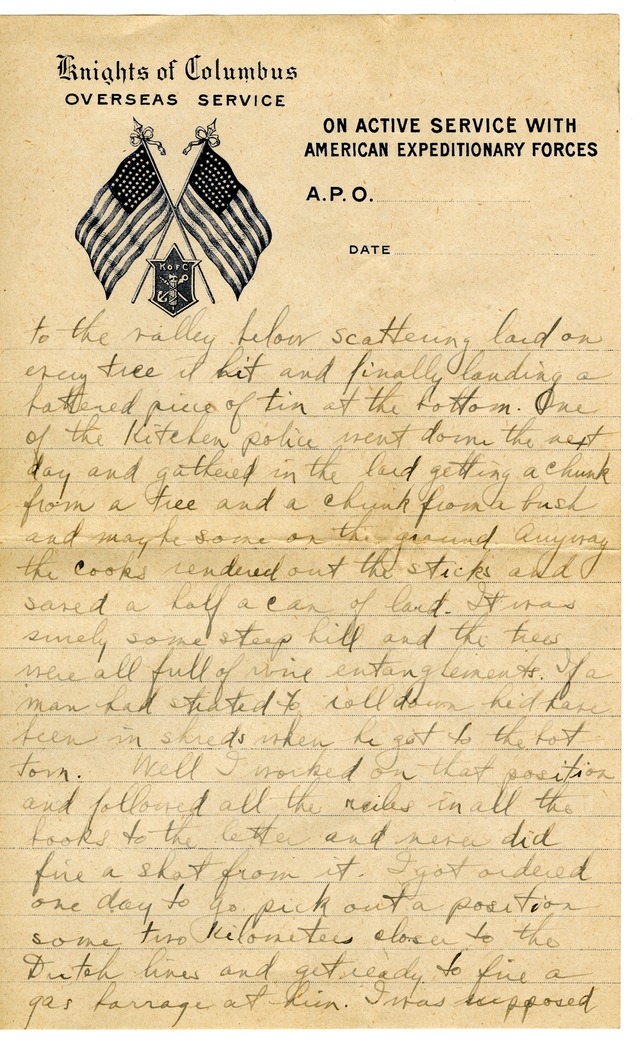 Knights of Columbus
OVERSEAS SERVICE
ON ACTIVE SERVICE WITH
AMERICAN EXPEDITIONARY FORCES
A.P.O.
DATE
K OF C
to the valley below scattering lard on
every tree it hit and finally landing a
battered piece of tin at the bottom. One
of the Kitchen police went down the next
day and gathered in the lard getting a chunk
from a tree and a chunk from a bush
and maybe some on the ground. Anyway
the cooks rendered out the sticks and
saved a half a can of lard. It was
surely some steep hill and the trees
were all full of wire entanglements. If a
man had strated to roll down he'd have
been in shreds when he got to the bot
tom. Well I worked on that position
and followed all the rules in all the
books to the letter and never did
fire a shot from it. I got ordered
one day to go pick out a position
some two Kilometers closer to the
Dutch lines and get ready to fire a
gas barrage at him. I was supposed